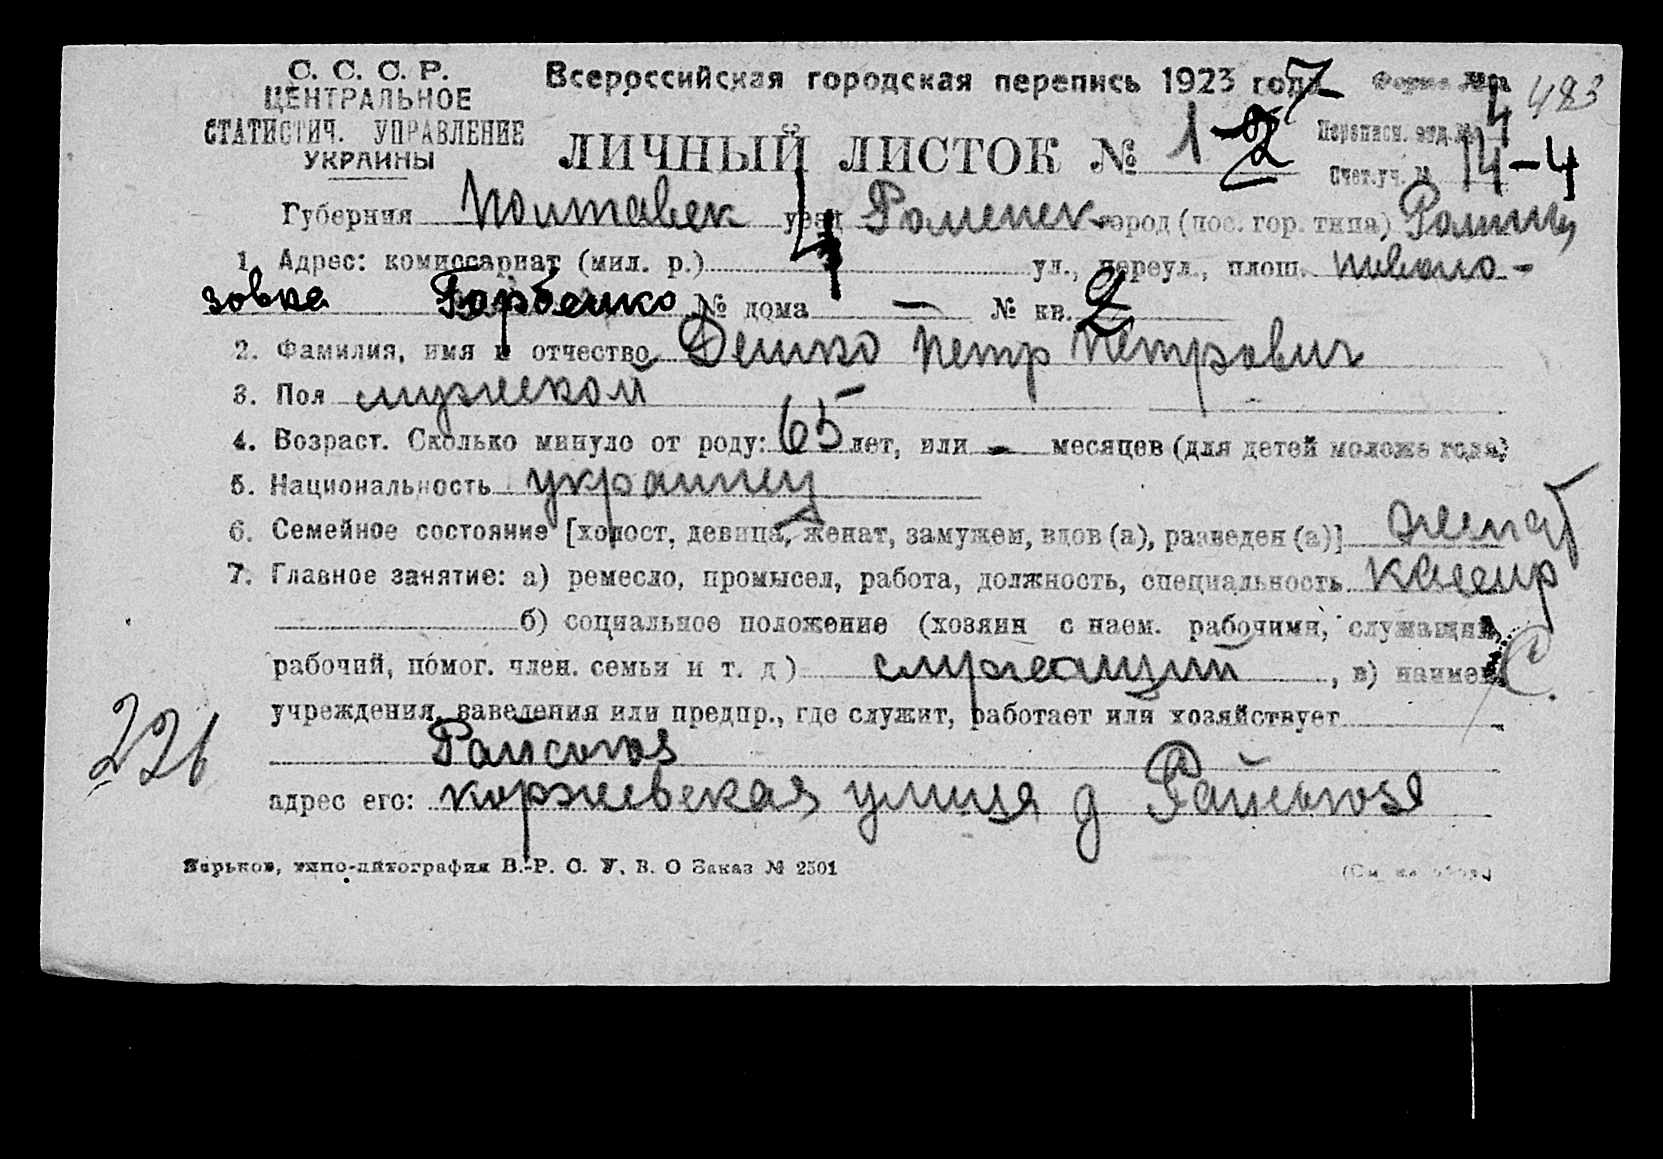 С. С. С. Р.
ЦЕНТРАЛЬНОЕ
СТАТИСТИЧ. УПРАВЛЕНИЕ
УКРАИНЫ
Всероссийская городская перепись 1923 года
7
Форма
4
483
ЛИЧНЫЙ ЛИСТОК № 1-2
Переписн. отд. №
Счет. уч. № 14-4
Губерния Полтавск уезд Роменск город (пос. гор. типа) Ромны
1. Адрес: комиссариат (мил. р.) 4 ул., переул., площ.
зовка Горбенко № дома — № кв. 2
2. Фамилия, имя и отчество Дешко Петр Петрович
3. Пол мужеской
4. Возраст. Сколько минуло от роду: 65 лет, или - месяцев (для детей моложе года)
5. Национальность украинец
6. Семейное состояние [холост, девица, женат, замужем, вдов (а), разведен (а)] женат
7. Главное занятие: а) ремесло, промысел, работа, должность, специальность кассир
б) социальное положение (хозяин с наем. рабочими, служащий,
рабочий, помог. член. семьи и т. д) служащий, в) наимен.
С.
учреждения, заведения или предпр., где служит, работает или хозяйствует
Райсоюз
226
адрес его: коржевская улица д Райсоюза
Харьков, типо-литография В.-Р. С. У. В. О Заказ № 2501